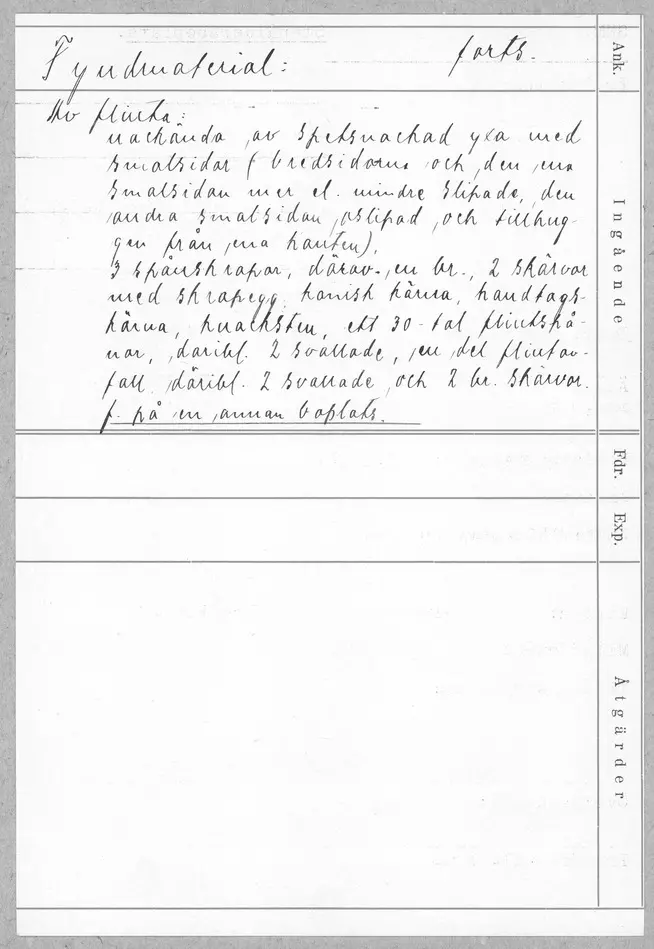 Fyndmaterial: forts.
Av flinta:
nackända av spetsnackad yxa med
smalsidor (bredsidorna och den ena
smalsidan mer el. mindre slipade, den
andra smalsidan oslipad och tillhug-
gen från ena kanten),
3 spånskrapor, därav en br., 2 skärvor
med skrapegg, konisk kärna, handtags-
kärna, knacksten, ett 30-tal flintspå-
nor, däribl. 2 svallade, en del flintav-
fall däribl. 2 svallade och 2 br. skärvor.
f. på en annan boplats.
Ank.
Ingående
Fdr.
Exp.
Åtgärder